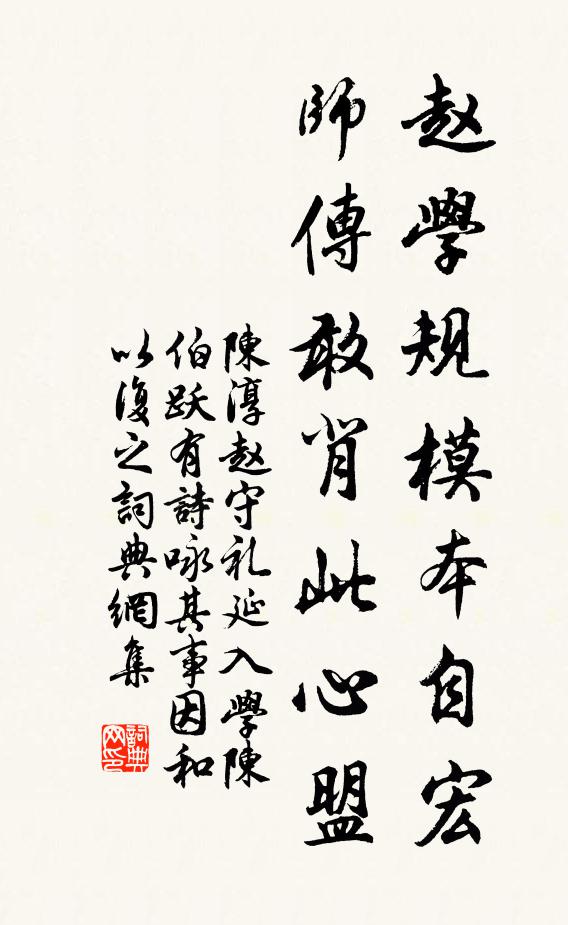 赵學規模本自宏
師傳敢背此心盟
陳淳赵守礼延入學陳
伯跃有詩咏其事因和
以復之詞典網集
詞典
网印